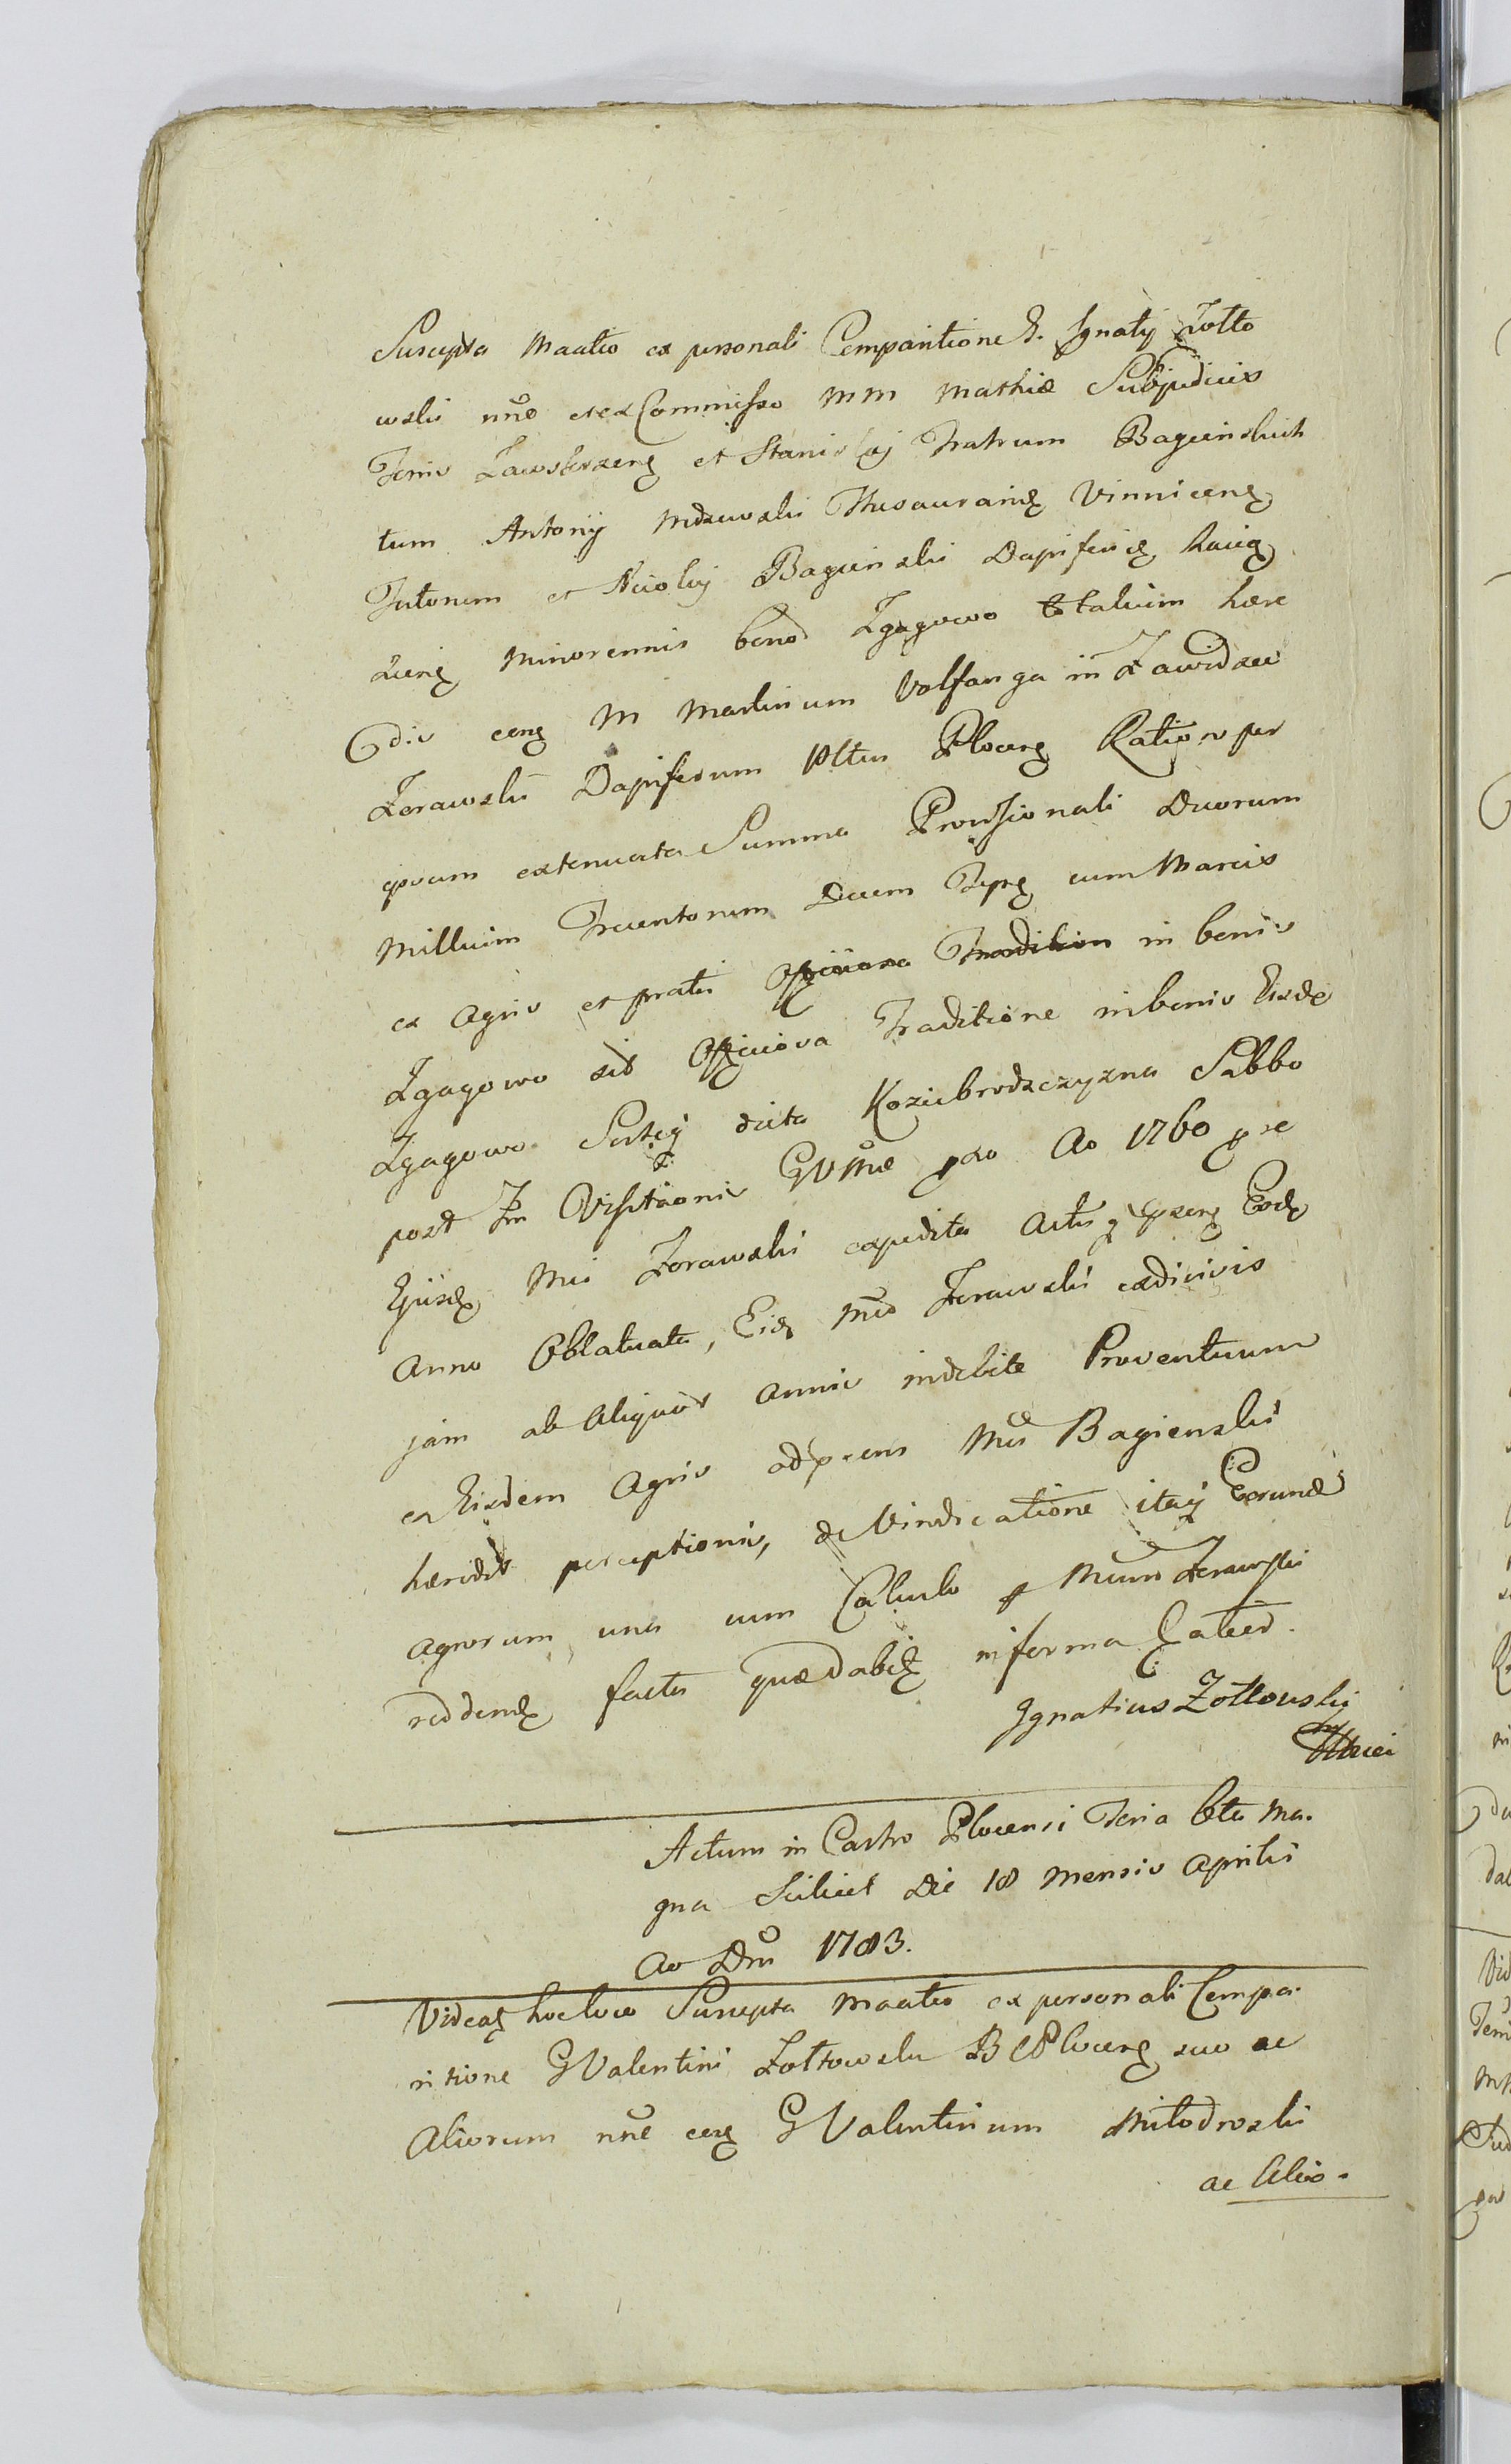 Suscepta Maatio ex personali Comparitione G. Ignatij Zołto
wski nñe et ex Commisso MM Mathiæ Subjudicis
Terris Zawskrzens et Stanislai Fratrum Bagienskich
tum Antonij Mdzewski Thesaurarid Vinnicens
Tutorum et Nicolai Bagienski Dapiferid
Minorennis bonor Zgagowo totalium hære
dis cons M Martinum Volfanga in Zawidzew
Zorawski Dapiferum Pltus Plocens Ratio nper
quum extenuata Summa Provisionali Duorum
Millium Trecentorum Decem Typs cum Marcis
ex Agris et pratis Officiosa Tradition in bonis
Zgagowo sit Officiosa Traditione in bonis Eisdē
Zgagowo Sortis dicta Koziebrodzczyzna Sabbo
post Fm Visitaonis GVMæ pxo Ao 1760 p se
Ejusd Mci Zorawski expedita Actis q Eod
Anno Oblatuata, Eid Mco Zorawski ex divis
jam ab Aliquot Annis indebite Proventuum
ex Eisdem Agris ad præns Mci Bagienski
hæredit perceptionis, de Vindicatione itaq Eorund
Agrorum una cum Calculo p Mcum Zorawski
reddend facta quæ dabit in forma Lateri.
Ignatius Zołtowski
Actum in Castro Plocensi Feria 6ta Ma.
gna Scilicet Die 18 Mensis Aprilis
Ao Dni 1783.
Videat hoc loco Suscepta Maatio ex personali Compa.
ritione G Valentini Zołtowski B C Plocens suo ac
Aliorum nñe cons G Valentinum Miłodroski
ac Alios.